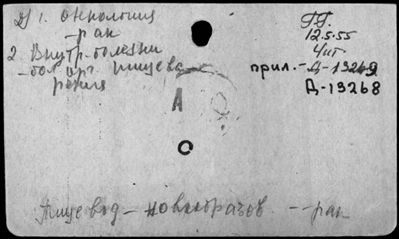 1. Онкология
- рак
2 Внутр. болезни
- бол. орг. пищева-
рения
Г.Г.
12.5.55
Чит
прил. - Д-13269
Д-13268
А
Пищевод - новообразов. - рак